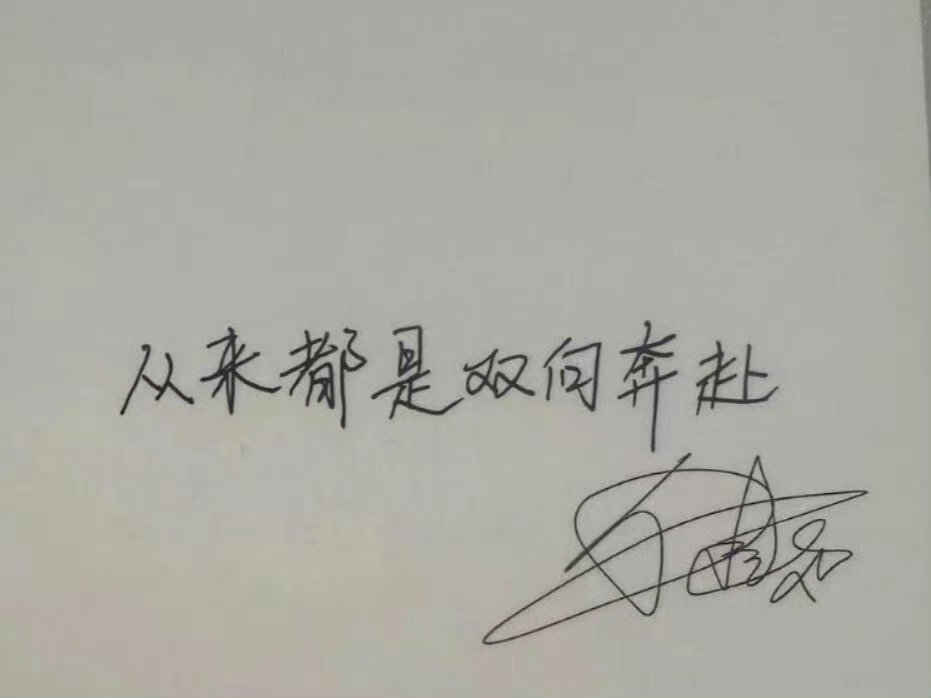 从来都是双向奔赴